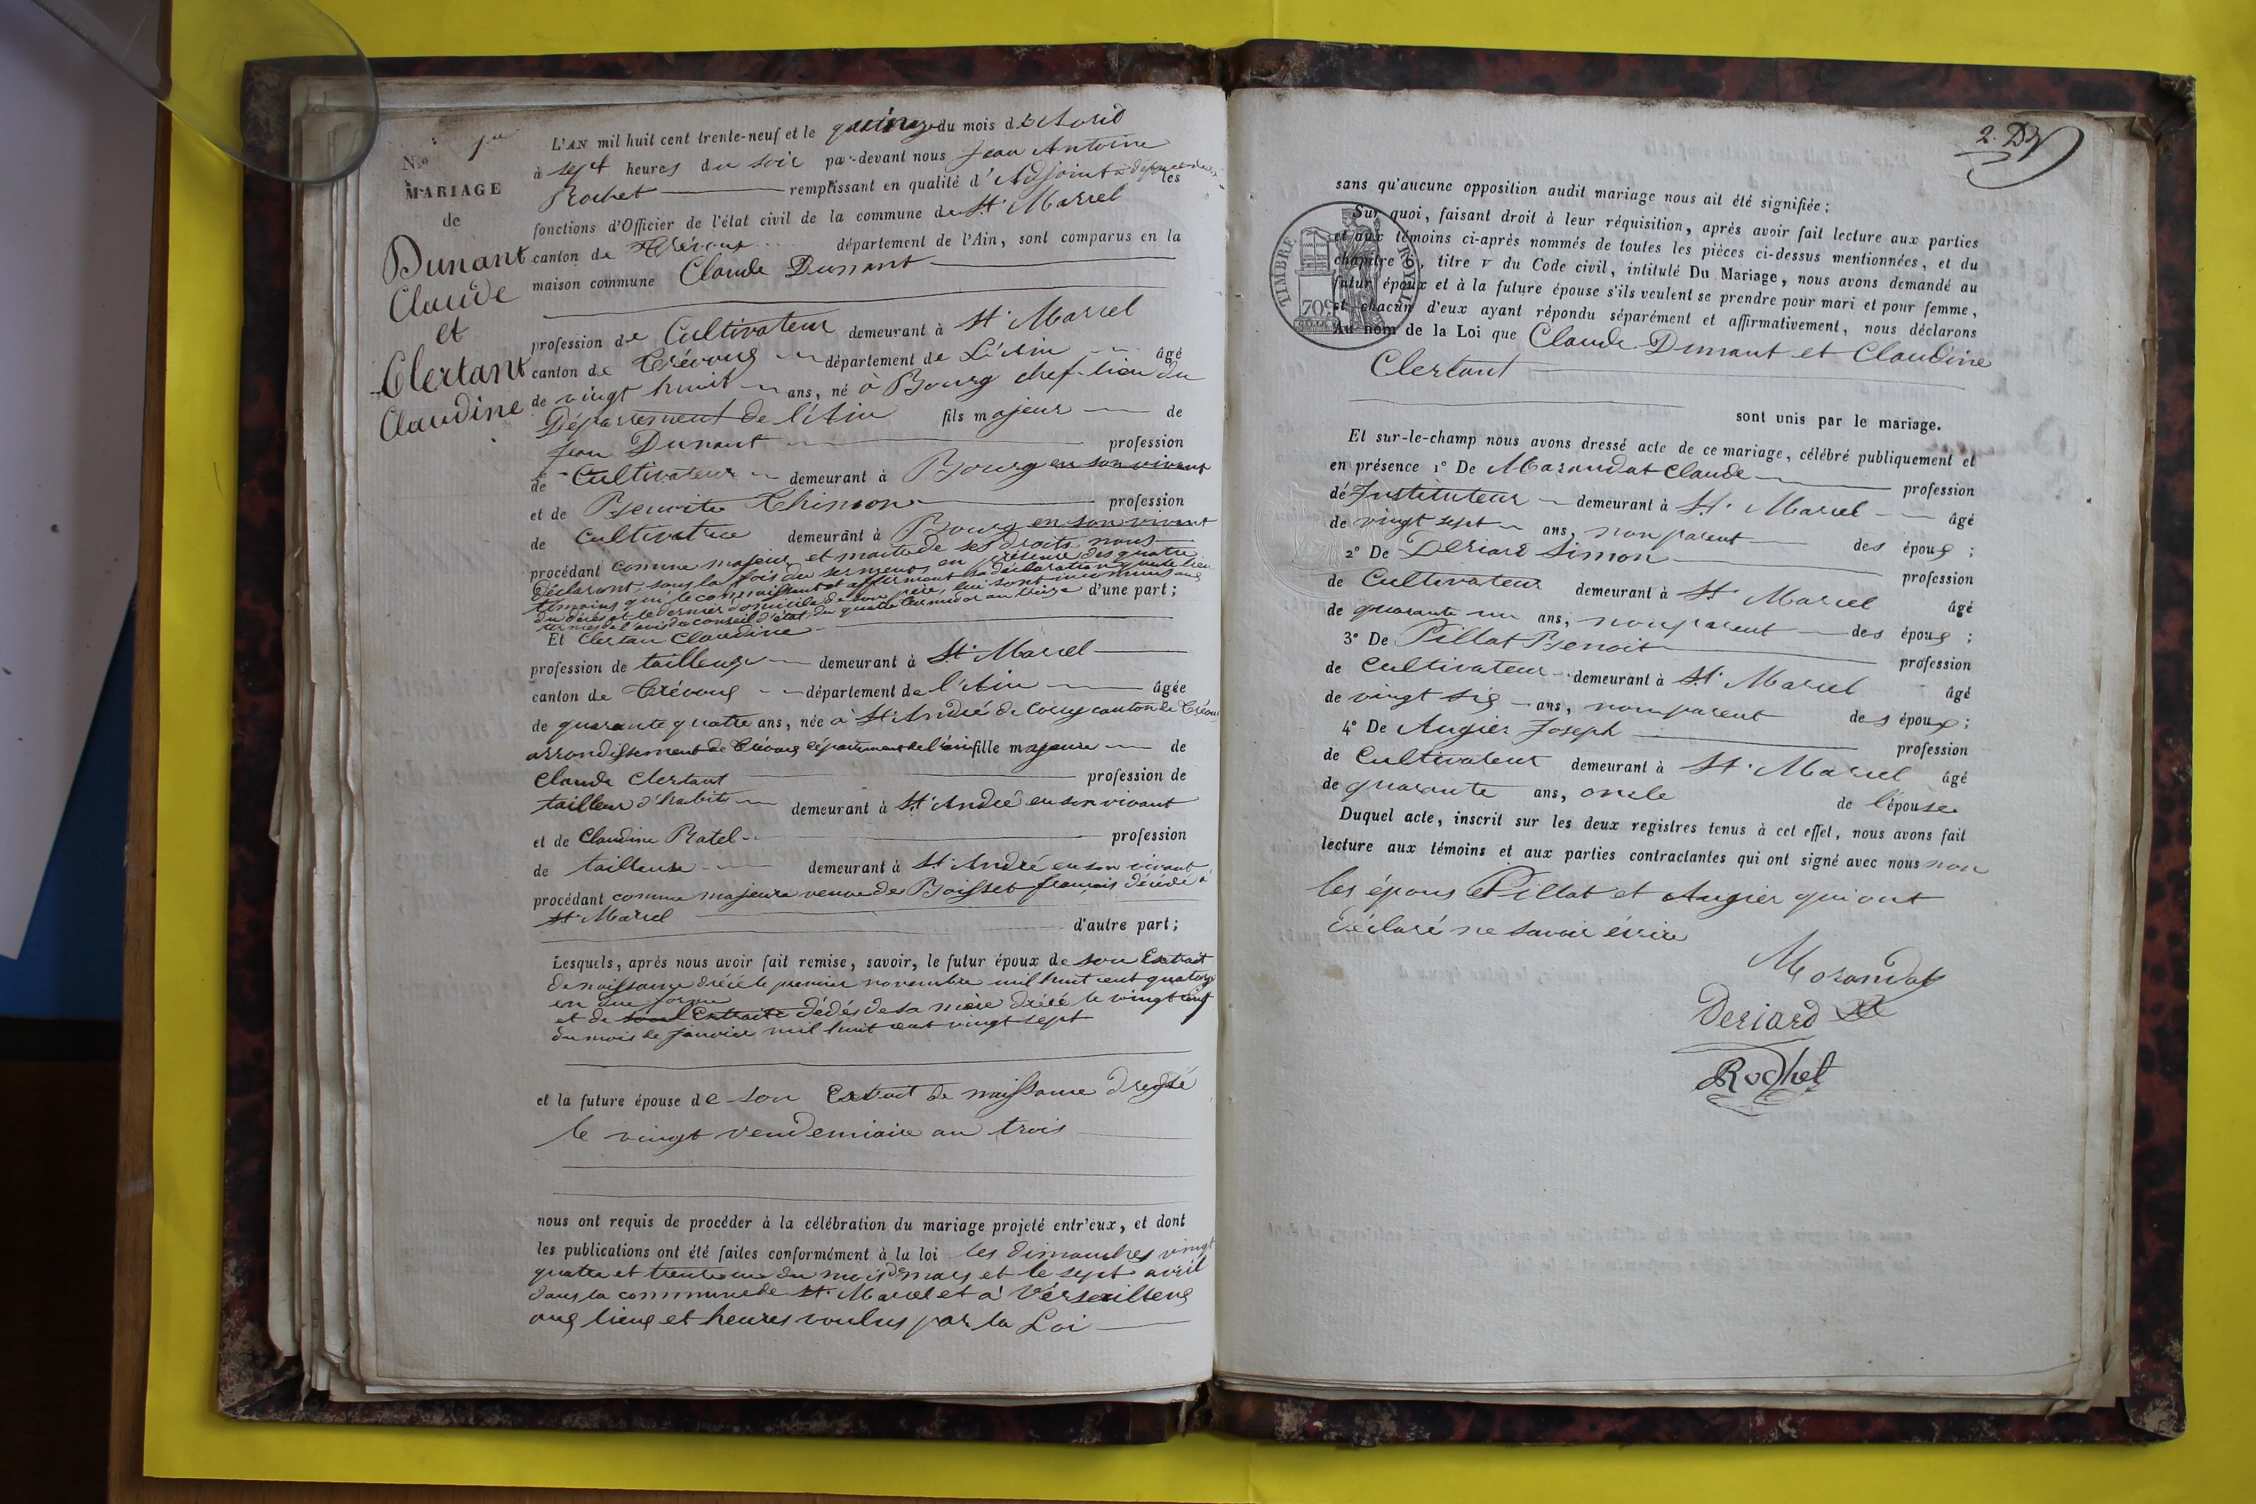 N.o 1er
MARIAGE
de
Dunant
Claude
et
Clertant
Claudine
L'AN mil huit cent trente-neuf et le quinze du mois d'Avril
à sept heures du soir par-devant nous Jean Antoine
Rochet remplissant en qualité d'Adjoint les
fonctions d'Officier de l'état civil de la commune de St Marcel
canton de Trévoux département de l'Ain, sont comparus en la
maison commune Claude Dunant
profession de Cultivateur demeurant à St Marcel
canton de Trévoux département de L'Ain âgé
de vingt huit ans, né à Bourg chef-lieu du
Département de l'Ain fils majeur de
Jean Dunant profession
de Cultivateur demeurant à Bourg en son vivant
et de Benoite Thinon profession
de Cultivatrice demeurant à Bourg en son vivant
procédant comme majeur et maitre de ses droits nous
déclarant sous la foi du serment en présence des quatre
témoins qui le connaissent et affirment sa déclaration que le lieu
du décès et le dernier domicile de son père lui sont inconnus aux d'une part;
termes de l'avis du conseil d'état du quatre termidor an treize
Et Clertan Claudine
profession de tailleuse demeurant à St Marcel
canton de Trévoux département de l'Ain âgée
de quarante quatre ans, née à St André de Corcy canton de Trévoux
arrondissement de Trévoux département de l'ain fille majeure de
Claude Clertant profession de
tailleur d'habits demeurant à St André en son vivant
et de Claudine Ratel profession
de tailleuse demeurant à St André en son vivant
procédant comme majeure veuve de Boisset françois décédé à
St Marcel
d'autre part;
Lesquels, après nous avoir fait remise, savoir, le futur époux de son Extrait
de naissance drécé le premier novembre mil huit cent quatorze
en due forme
et de Extraits dédés de sa mère dréré le vingt cinq
du mois de janvier mil huit cent vingt sept
et la future épouse de son Extrait de naissance dressé
le vingt vendemiaire an trois
nous ont requis de procéder à la célébration du mariage projeté entr'eux, et dont
les publications ont été faites conformément à la loi les dimanches vingt
quatre et trente un du mois de mars et le sept avril
dans la commune de St Marcel et à Versailleux
aux lieux et heures voulus par la Loi
2.
sans qu'aucune opposition audit mariage nous ait été signifiée;
Sur quoi, faisant droit à leur réquisition, après avoir fait lecture aux parties
et aux témoins ci-après nommés de toutes les pièces ci-dessus mentionnées, et du
chapitre 6, titre v du Code civil, intitulé Du Mariage, nous avons demandé au
futur époux et à la future épouse s'ils veulent se prendre pour mari et pour femme,
et chacun d'eux ayant répondu séparément et affirmativement, nous déclarons
Au nom de la Loi que Claude Dunant et Claudine
Clertant
TIMBRE ROYAL
70c
sont unis par le mariage.
Et sur-le-champ nous avons dressé acte de ce mariage, célébré publiquement et
en présence 1° De Marandat Claude profession
de Instituteur demeurant à St Marcel âgé
de vingt sept ans, non parent des époux;
2° De Deriard Simon profession
de Cultivateur demeurant à St Marcel âgé
de quarante un ans, non parent des époux;
3° De Pillat Benoit profession
de Cultivateur demeurant à St Marcel âgé
de vingt six ans, non parent des époux;
4° De Augier Joseph profession
de Cultivateur demeurant à St Marcel âgé
de quarante ans, oncle de l'épouse
Duquel acte, inscrit sur les deux registres tenus à cet effet, nous avons fait
lecture aux témoins et aux parties contractantes qui ont signé avec nous non
les époux et Pillat et Augier qui ont
déclaré ne savoir écrire
Morandat
Deriard
Rochet